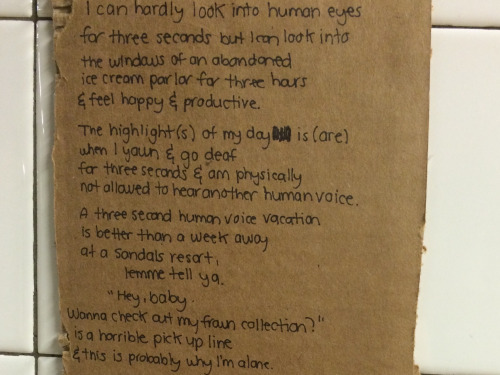 I can hardly look into human eyes
for three seconds but I can look into
the windows of an abandoned
ice cream parlor for three hours
& feel happy & productive.
The highlight(s) of my day is (are)
when I yawn & go deaf
for three seconds & am physically
not allowed to hear another human voice.
A three second human voice vacation
is better than a week away
at a Sandals resort,
lemme tell ya.
"Hey, baby.
Wanna check out my frown collection?"
is a horrible pick up line
& this is probably why I'm alone.